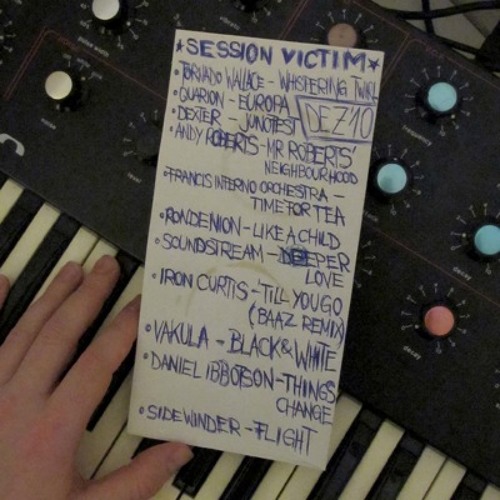 ★SESSION VICTIM★
•TORNADO WALLACE – WHISTERING TWIRL
•QUARION – EUROPA
•DEXTER – JUNOTEST
DEZ'10
•ANDY ROBERTS – MR ROBERTS'
NEIGHBOURHOOD
•FRANCIS INFERNO ORCHESTRA –
TIME FOR TEA
•RONDENION – LIKE A CHILD
•SOUNDSTREAM – DEEPER
LOVE
•IRON CURTIS – 'TILL YOU GO
(BAAZ REMIX)
•VAKULA – BLACK & WHITE
•DANIEL IBBOTSON – THINGS
CHANGE
•SIDEWINDER – FLIGHT
frequency
decay